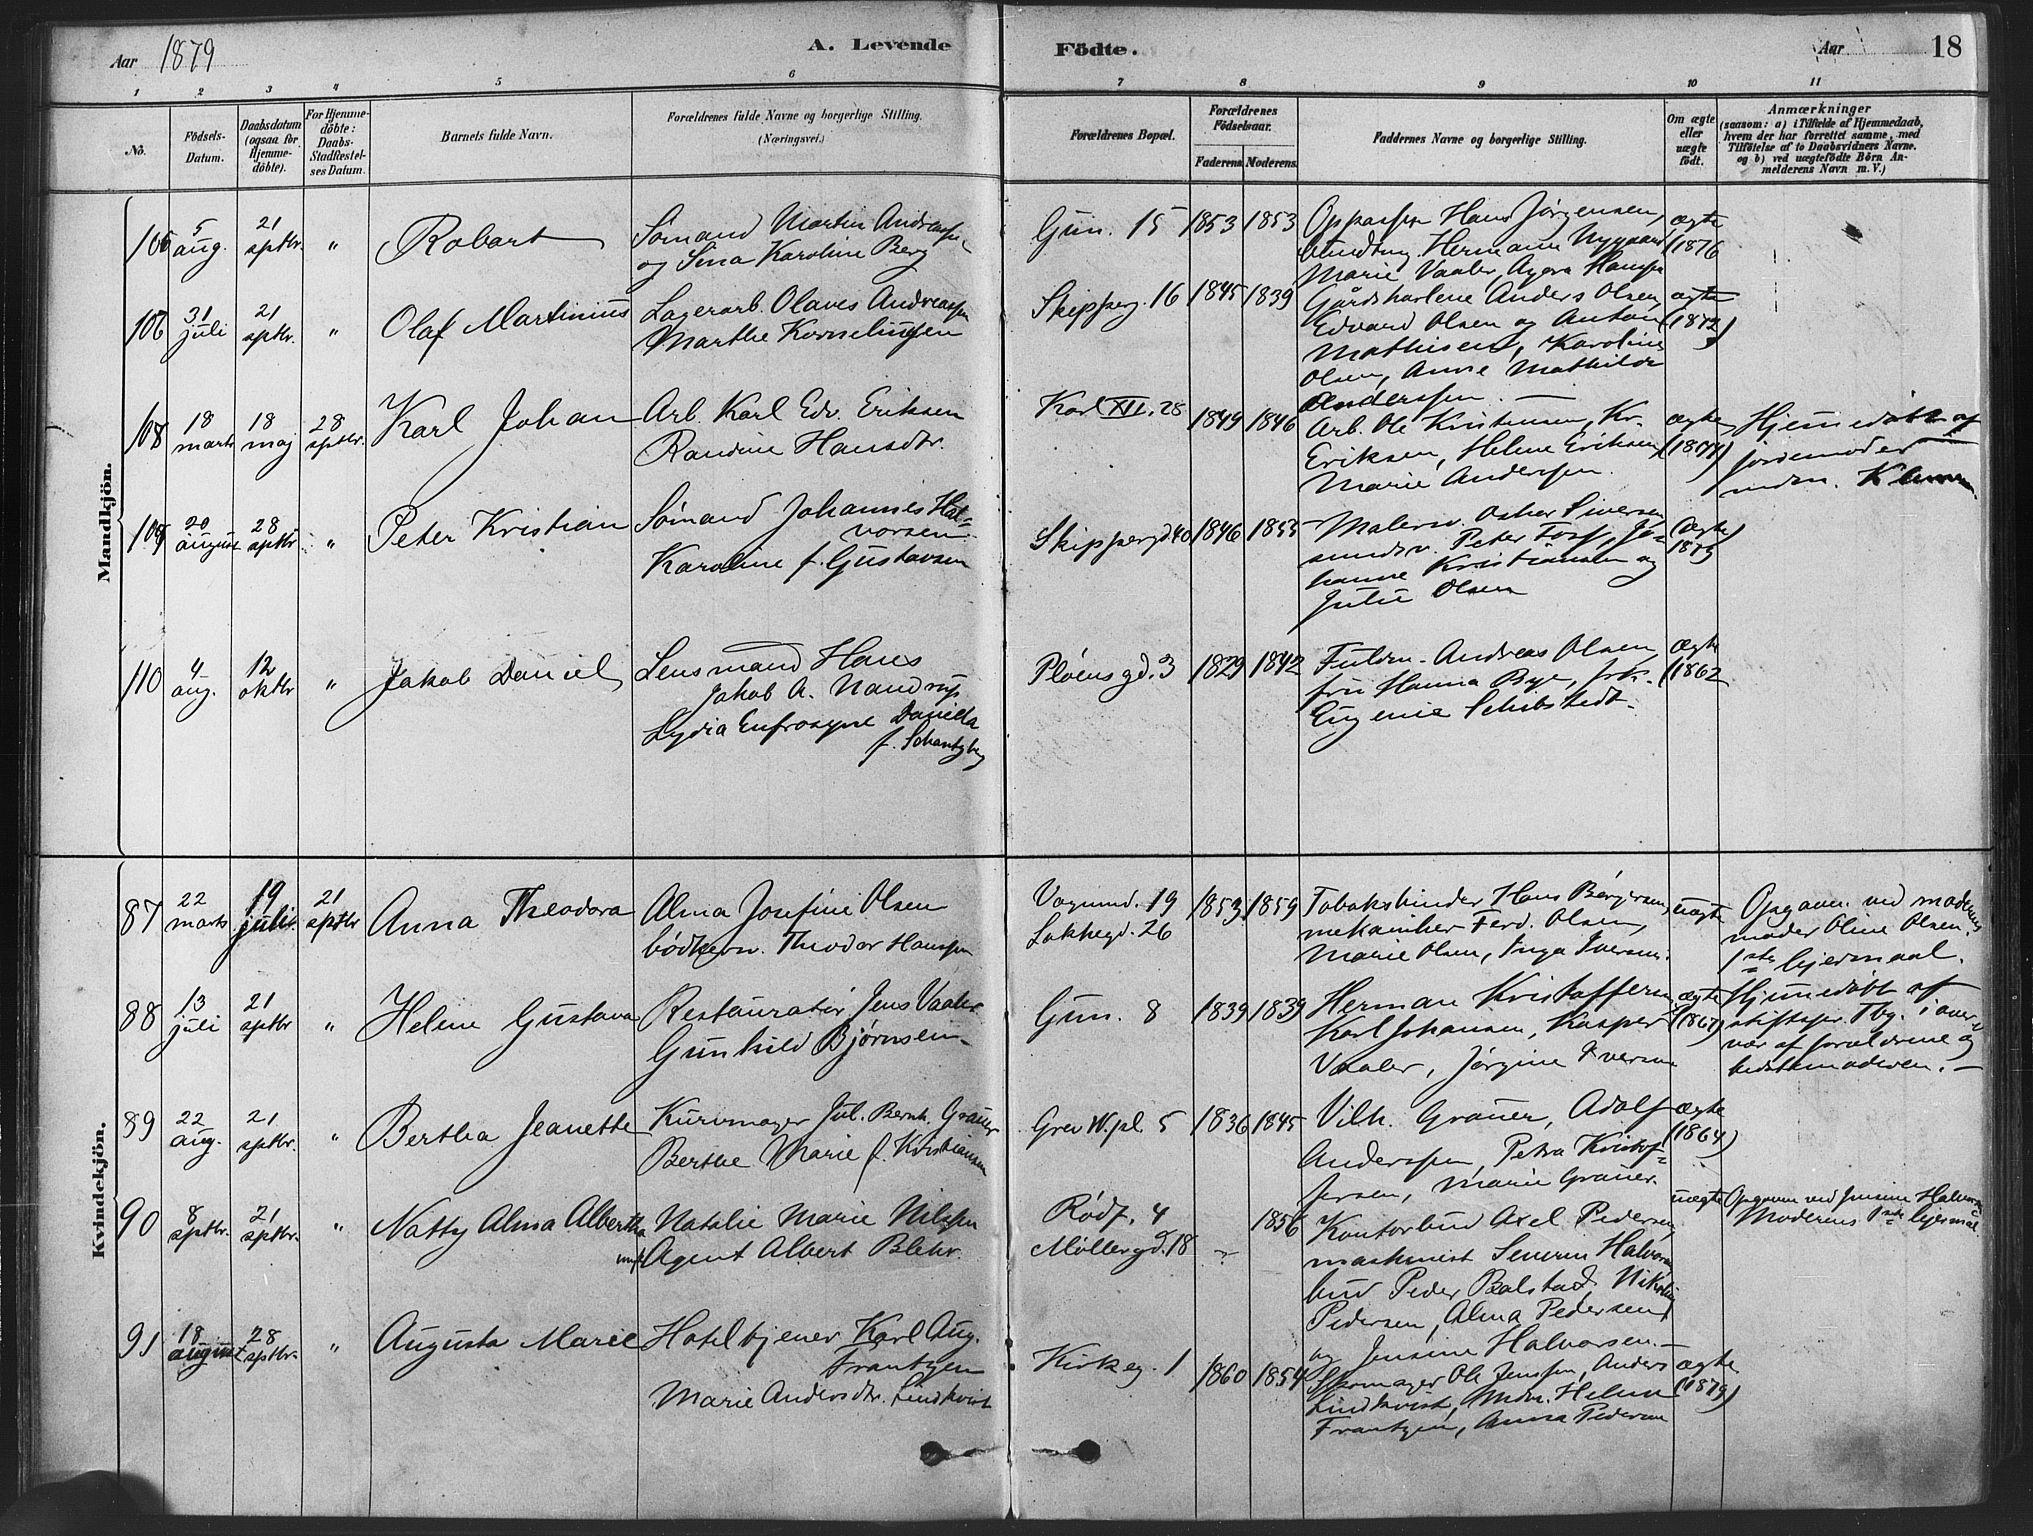 Aar 1879
A. Levende
Födte.
Aar
18
1 2 3 4 5 6 7 8 9 10 11
No.
Födsels-
Datum.
Daabsdatum
(ogsaa for
Hjemme-
döbte).
For Hjemme-
döbte:
Daabs-
Stadfæstel-
ses Datum.
Barnets fulde Navn.
Forældrenes fulde Navne og borgerlige Stilling.
(Næringsvei.)
Forældrenes Bopæl.
Forældrenes
Födselsaar.
Faderens. Moderens.
Faddernes Navne og borgerlige Stilling.
Om ægte
eller
uægte
födt.
Anmærkninger
(saasom: a) i Tilfælde af Hjemmedaab,
hvem der har forrettet samme, med
Tilföielse af to Daabsvidners Navne.
og b) ved uægtefödte Börn An-
melderens Navn m. V.)
Mandkjön.
5 aug.
21 sptbr.
"
Robart
Sømand Martin Andreassen
og Sina Karoline Berg
Grün. 15
1853
1853
Hans Jørgensen,
Hermann Nygaard
Marie Vaaler,
ægte
(1876
31 juli
21 sptbr.
"
Olaf Martinius
Lagerarb. Olaves Andreassen
Marthe Korneliussen
Skipperg. 16
1845
1839
Gårdskarlene Anders Olsen
Edvard Olsen og Anton
Mathisen, Karoline
Olsen, Anne Mathilde
Anderssen. —
ægte
108
18 marts
18 maj
28 sptbr.
Karl Johan
Arb. Karl Edv. Eriksen
Randine Hansdtr.
Karl XII. 28
1849
1846
Arb. Ole Kristensen, Kr.
Eriksen, Helene Eriksen,
Marie Anderssen.
ægte
(1874)
Hjemmedøbt af
jordemoder
109
20 august
28 sptbr
"
Peter Kristian
Sømand Johannes Hal-
vorsen
Karoline f. Gustavsen
Skippergd 40
1846
1855
Malersv. Oskar Siversen
Peter Foss, Jo-
hanne Kristiansen og
Julie Olsen
ægte
110
4 aug.
12 oktbr
"
Jakob Daniel
Lensmand Hans
Jakob A. Nandrup
Lydia Eufrosyne Daniella
Pløensgd. 3
1829
1842
Fuldm. Andreas Olsen
fru Hanna Bye, frk.
Eugenie Schibstedt.
ægte
(1862
Kvindekjön.
87
22 marts
19 juli
21 sptbr
Anna Theodora
Alma Josefine Olsen
bødkersv. Theodor Hanssen
Vognmd. 19
Lakkegd. 26
1853
1859
Tobaksbinder Hans Børgersen,
mekaniker Ferd. Olsen,
Marie Olsen, Inga Iversen.
uægte
Opgaven ved moderens
moder Oline Olsen.
1ste lejermaal.
88
13 juli
21 sptbr
"
Helene Gustava
Restauratør Jens Vaaler
Gunhild Bjørnsen
Grün. 8
1839
1839
Herman Kristoffersen
Karl Johansen, Kasper
Vaaler, Jørgine Iversen
ægte
(1867)
Hjemmedøbt af
stiftspr. Tbg. i over-
vær af forældrene og
bedstemoderen. —
89
22 aug.
21 sptbr.
"
Bertha Jeanette
Kurvmager Jul. Bernh. Grauer
Berthe Marie f. Kristiansen
Grev W. pl. 5
1836
1845
Vilh. Grauer, Adolf
Anderssen, Petra Kristof-
fersen, Marie Grauer.
ægte
(1864)
90
8 sptbr.
21 sptbr.
"
Natty Alma Albertha
Natalie Marie Nilssen
Agent Albert Blehr.
Rødf. 4
Møllergd. 18
1856
Kontorbud Axel Pedersen,
maskinist Severin Halvorsen
bud Peder Balstad Nikoline
Pedersen, Alma Pedersen
og Jensine Halvorsen. —
uægte
Opgaven ved Jensine Halvorsen
Moderens 1ste lejermaal
91
18 august
28 sptbr.
"
Augusta Marie
Hoteltjener Karl Aug.
Frantzen
Marie Andersdtr. Lindkvist
Kirkeg. 1
1860
1854
Skomager Ole Jenssen, Anders
Lindkvist, Mdm. Helene
Frantzen, Anna Pedersen
ægte
(1879)